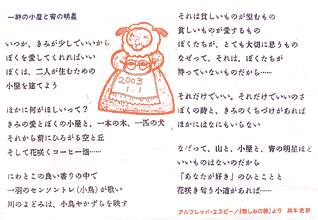 一軒の小屋と宵の明星
いつか、きみが少しでいいから
ぼくを愛してくれればいい
ぼくは、二人が住むための
小屋を建てよう
ほかに何がほしいって？
きみの愛とぼくの小屋と、一本の木、一匹の犬
それから前にひろがる空と丘
そして花咲くコーヒー畑……
にわとこの良い香りの中で
一羽のセンソントレ(小鳥)が歌い
川のよどみは、小鳥やかずらを映す
2003
1・1
それは貧しいものが望むもの
貧しいものが愛するもの
ぼくたちが、とても大切に思うもの
なぜって、それは、ぼくたちが
持っていないものだから……
それだけでいい。それだけでいいのさ
ぼくの詩と、きみのくちづけがあれば
ほかにはなにもいらない
なぜって、山と、小屋と、宵の明星ほど
いいものはないのだから
「あなたが好き」のひとことと
花咲き匂う小道があれば……
アルフレッド・エスピーノ『悲しみの籠』より